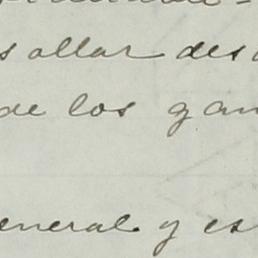 sollar des
de los gan
eneral y es